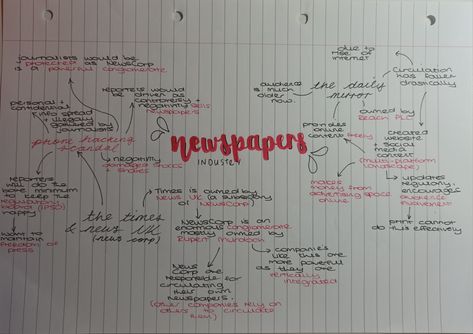 journalists would be
protected as NewsCorp
is a powerful conglomerate
personal +
confidential
info spread
+ illegally
gathered by
journalists
reporters would
be driven as
controversy +
negativity sells
newspapers
phone hacking
scandal
negativity
damaged
shares
reporters
will do the
bare minimum
to keep the
regulators
(IPSO)
happy
want to
maintain
freedom of
press
newspapers
INDUSTRY
the times
& news UK
(news corp)
Times is owned by
News UK (a subsidary
of Newscorp)
NewsCorp is an
enormous conglomerate
mostly owned by
Rupert Murdoch
News
Corp are
responsible for
circulating
their own
newspapers.
(other companies rely on
others to circulate
them)
companies
like this are
more powerful
as they are
vertically
integrated
the daily
mirror
audience
is much
older
now.
due to
rise of
internet
Circulation
has fallen
drastically
owned by
Reach PLC
provides
online
content freely
makes
money from
advertising space
online
created
website +
social
media
content
(multi platform
landscape)
updates
regularly
encourages
audience
involvement
print cannot
do this effectively